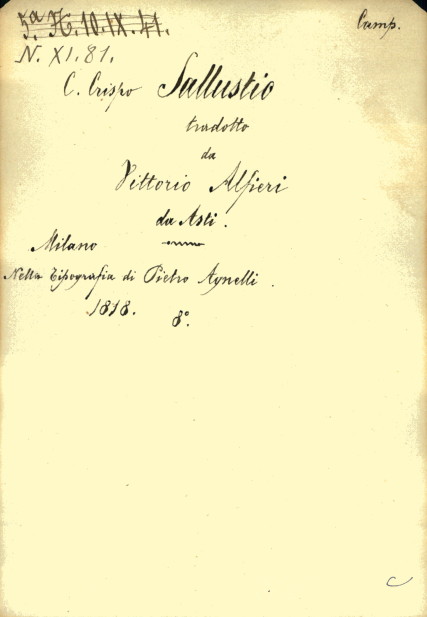 5.a H. 10. IX. 41.
Camp.
N. XI. 81.
C. Crispo Sallustio
tradotto
da
Vittorio Alfieri
da Asti.
Milano
Nella Tipografia di Pietro Agnelli.
1818. 8°.
C